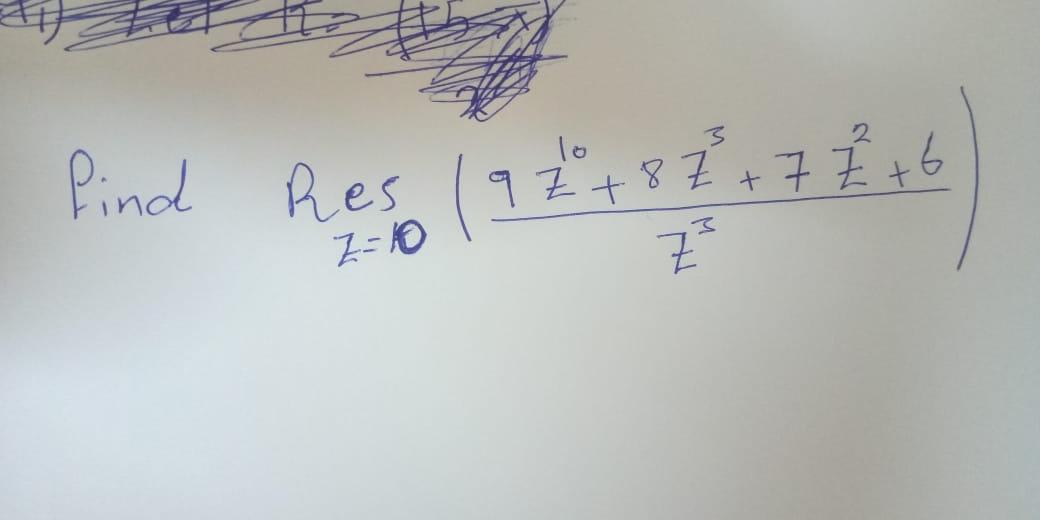 find Res z=10 ( (9z^10 + 8z^3 + 7z^2 + 6) / z^3 )